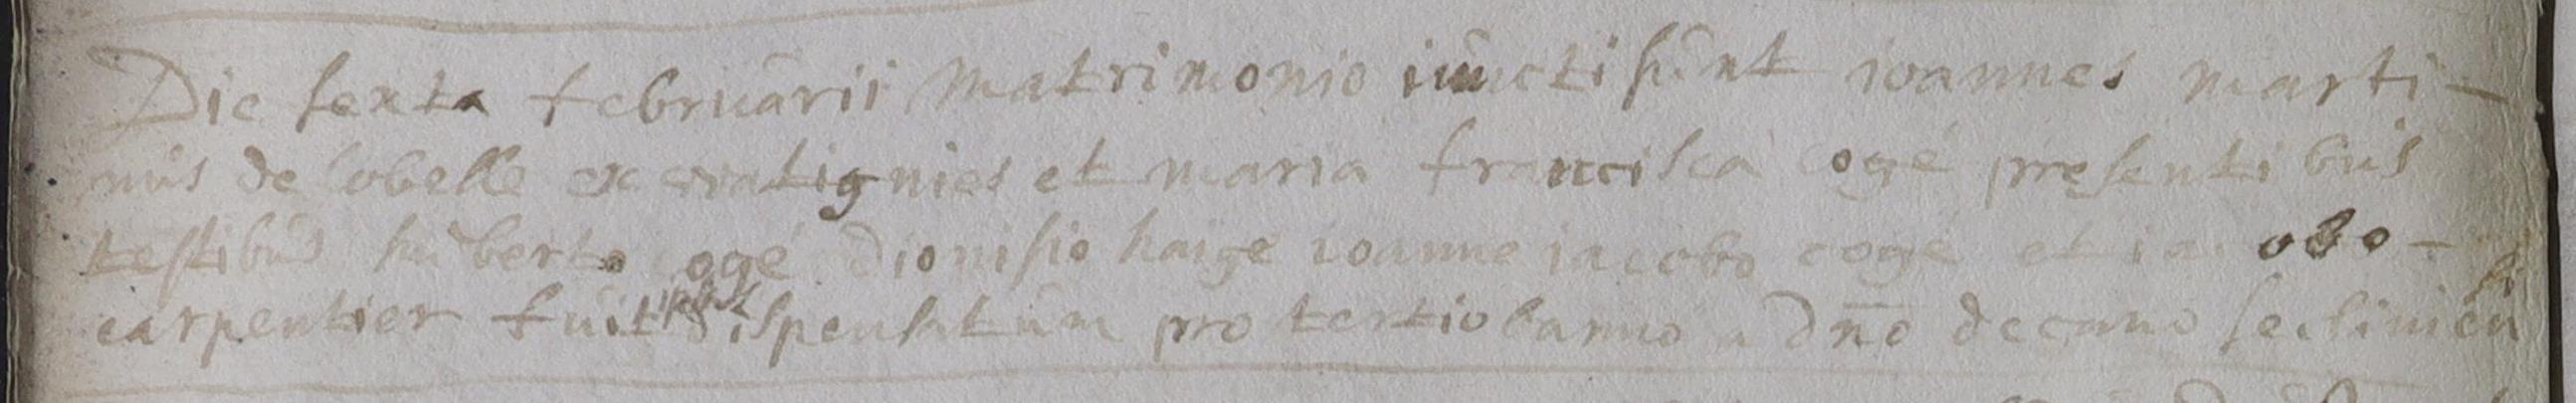 Die sexta februarii matrimonio iuncti sunt ioannes marti-
nus de lobelle ex watignies et maria francisca cogé presentibus
testibus huberto cogé dionisio haige ioanne iacobo cogé et ia obo
carpentier fuit dispensatum pro tertio banno a dno decano secliniensi